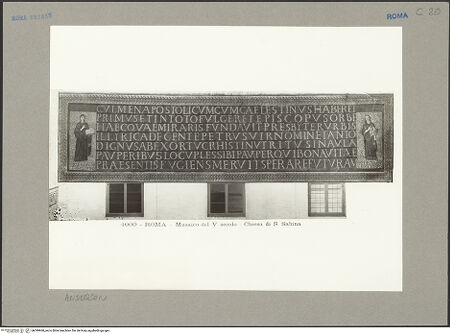 ROMA C 80
CVLMEN APOSTOLICVM CVM CAELESTINVS HABERET
PRIMVS ET IN TOTO FVLGERET EPISCOPVS ORBE
HAEC QVAE MIRARIS FVNDAVIT PRESBYTER VRBIS
ILLYRICA DE GENTE PETRVS VIR NOMINE TANTO
DIGNVS AB EXORTV CRHISTI NVTRITVS IN AVLA
PAVPERIBVS LOCVPLES SIBI PAVPER QVI BONA VITAE
PRAESENTIS FVGIENS MERVIT SPERARE FVTVRAM
ROMA - Musaico del V secolo - Chiesa di S. Sabina
ANDERSON